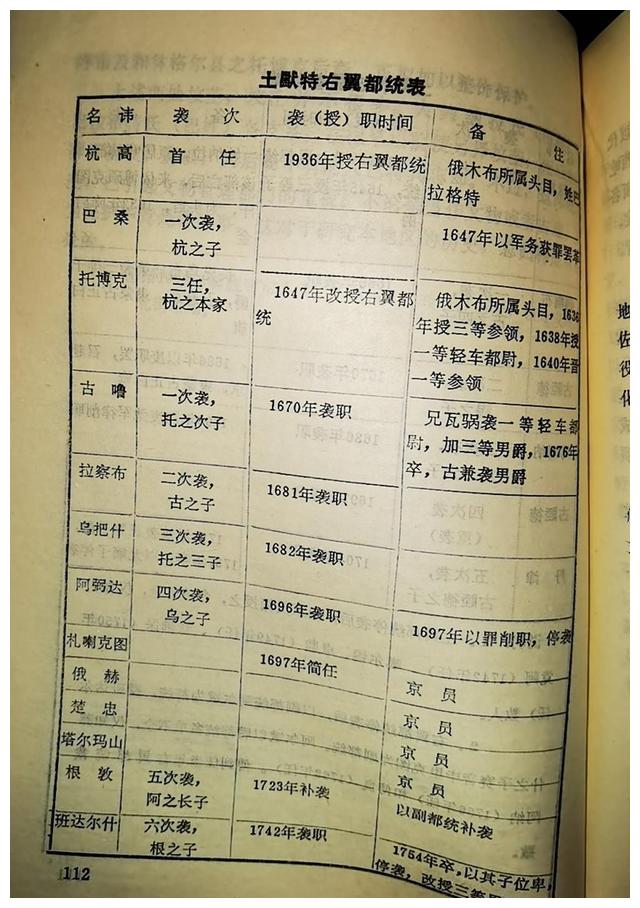 土默特右翼都统表
名讳 袭次 袭（授）职时间 备注
杭高 首任 1936年授右翼都统 俄木布所属头目，姓巴
拉格特
巴桑 一次袭， 1647年以军务获罪罢革
杭之子
托博克 三任， 1647年改授右翼都 俄木布所属头目，1636
杭之本家 统 年授三等参领，1638年授
一等轻车都尉，1640年晋
一等参领
古噜 一次袭， 1670年袭职 兄瓦骊袭一等轻车都
托之次子 尉，加三等男爵，1676年
卒，古兼袭男爵
拉察布 二次袭， 1681年袭职
古之子
乌把什 三次袭， 1682年袭职
托之三子
阿弼达 四次袭， 1696年袭职 1697年以罪削职，停袭
乌之子
札喇克图 1697年简任 京员
俄赫 京员
楚忠 京员
塔尔玛山 京员
根敦 五次袭， 1723年补袭 以副都统补袭
阿之长子
班达尔什 六次袭， 1742年袭职 1754年卒，以其子位卑，
根之子 停袭，改授三等男
112
地
佐
役
化